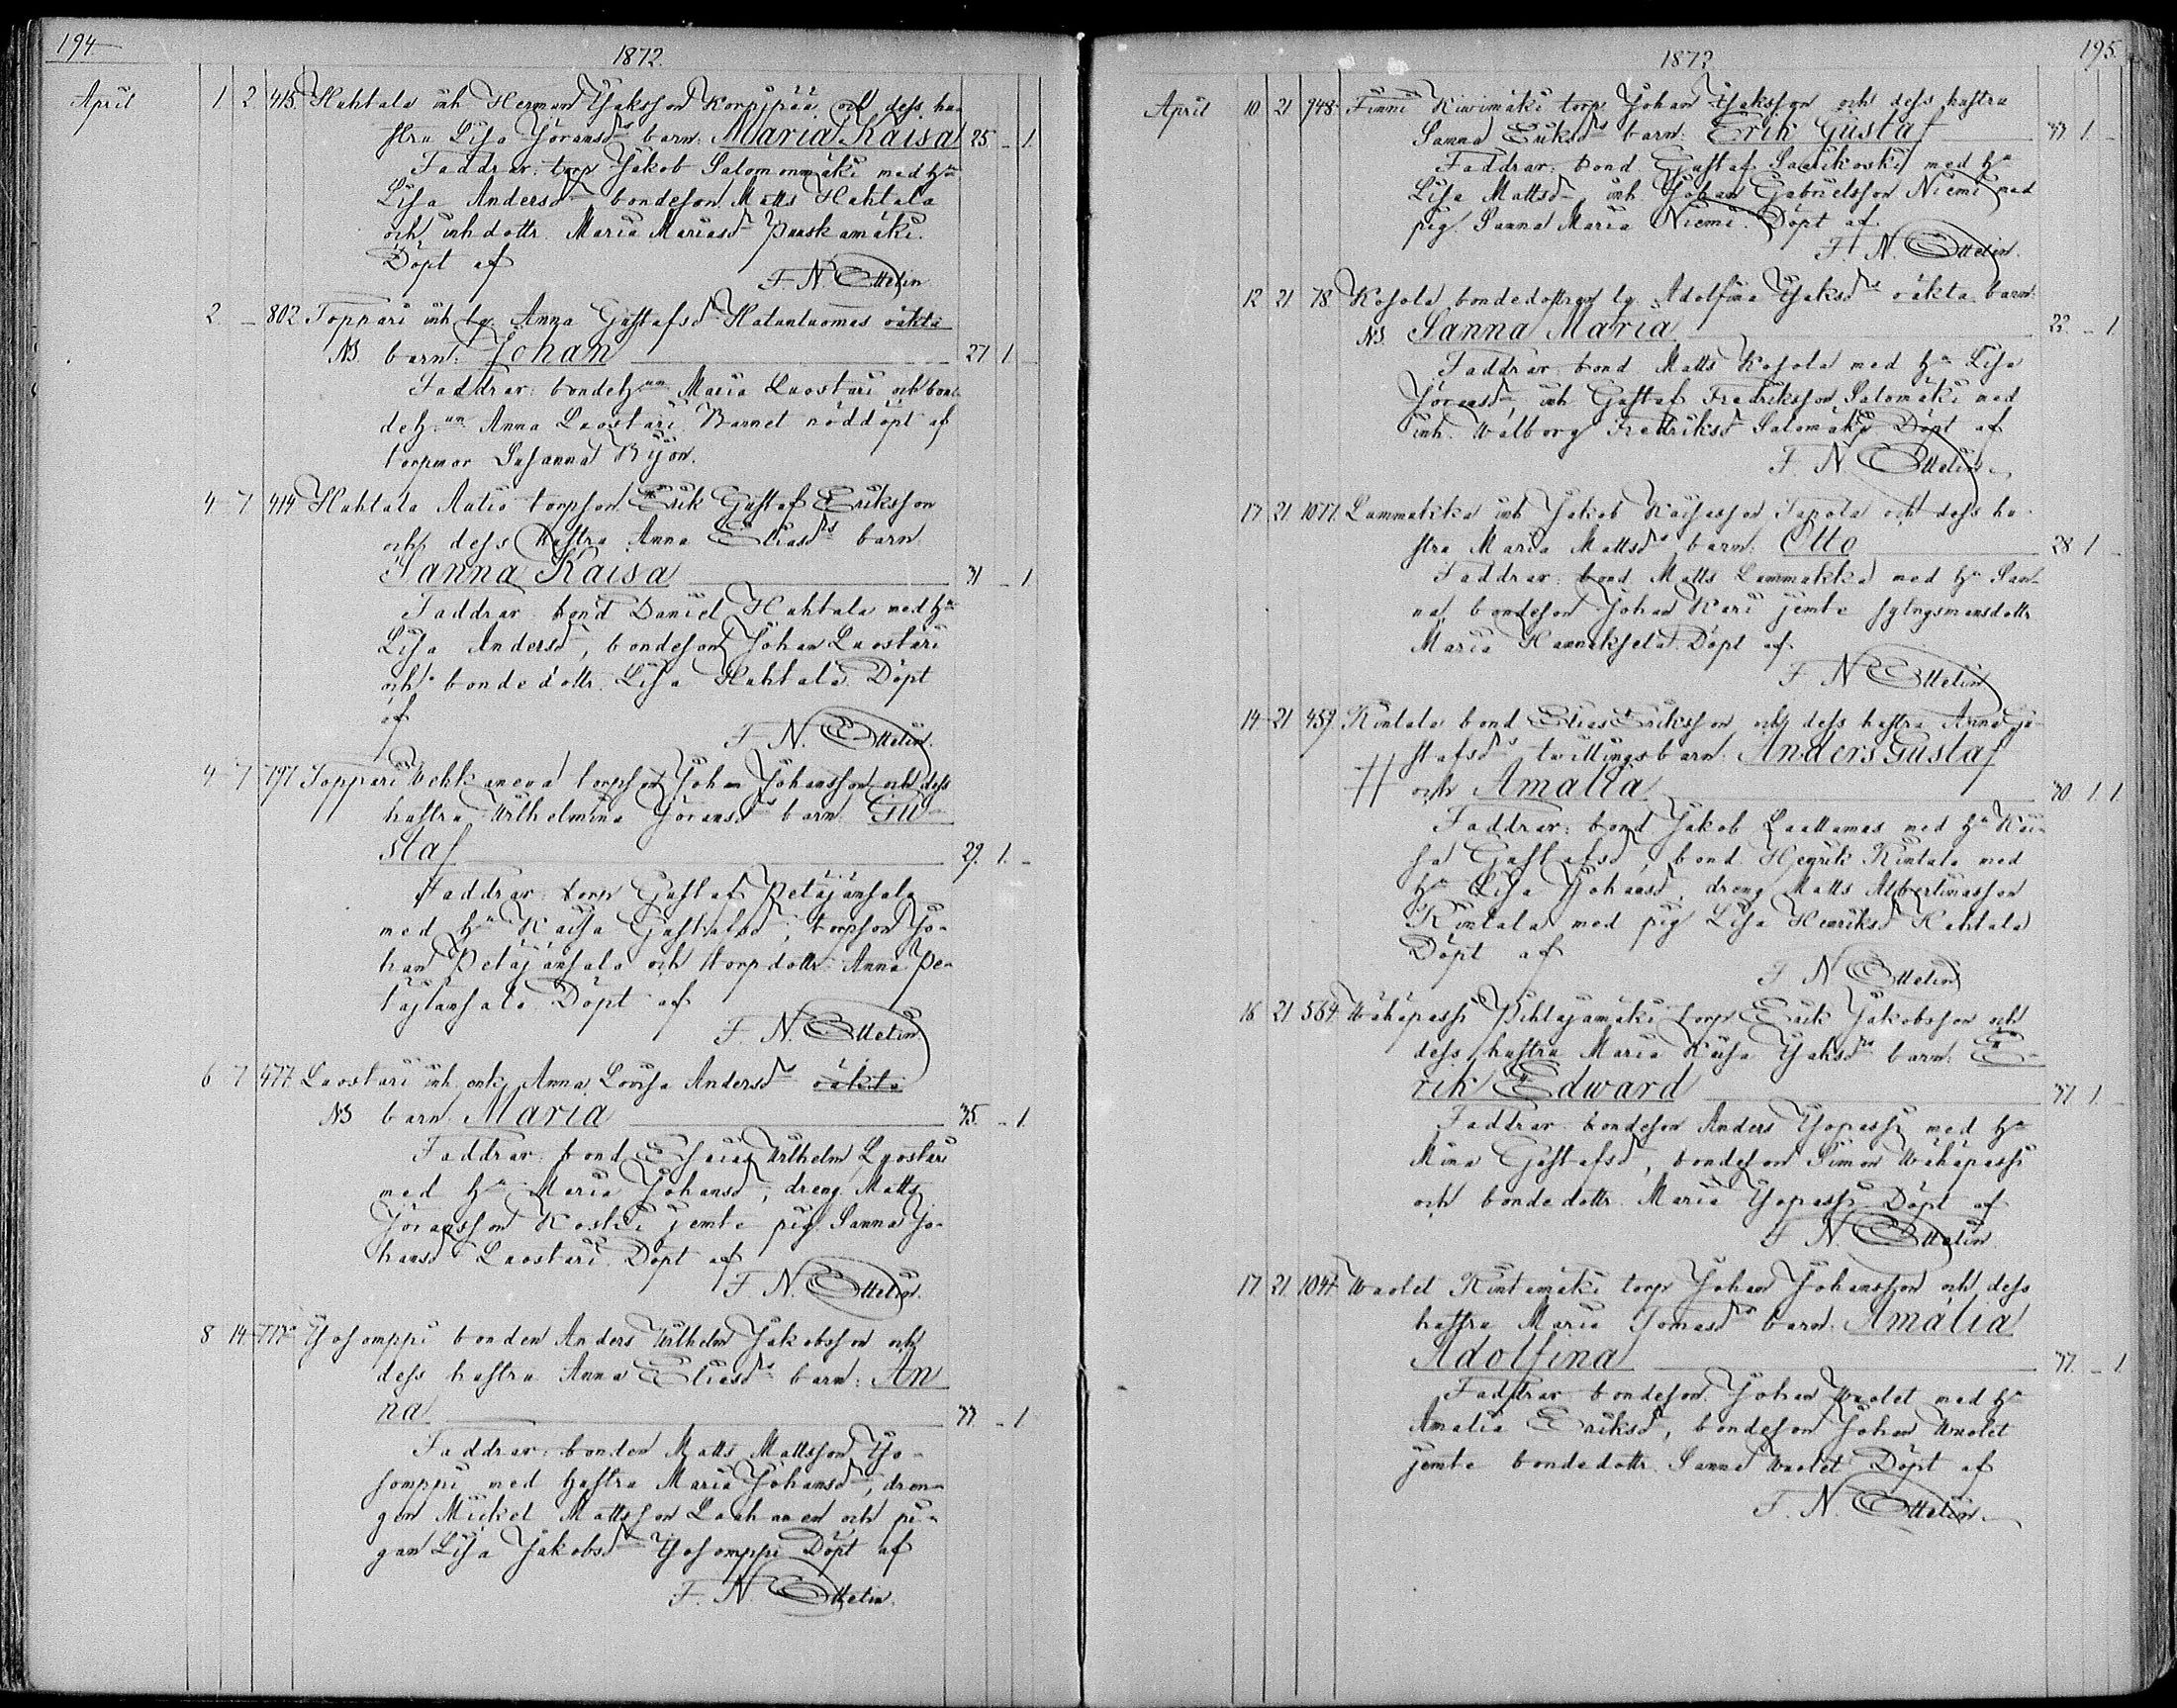 194.
1872.
April 1 2 415. Hahtala inh Herman Isaksson Korpipää och dess hu-
stru Lisa Göransdrs barn: Maria Kaisa 25. - 1.
Faddrar: torp Jakob Salomonmäki med hn
Lisa Andersdr bondeson Matts Hahtala
och inhdottr. Maria Mariasdr Puskamäki.
Döpt af
F. N. Ottelin
2. - 802 Toppari inh lg. Anna Gustafsdr Hatunluomas oäkta
NB. barn: Johan 27 1 -
Faddrar: bondehun Maria Luostari och bon-
dehun Anna Luostari. Barnet nöddöpt af
torpmor Susanna Björn.
4 7 414 Hahtala Autio torpson Erik Gustaf Eriksson
och dess hustru Anna Eliasdrs barn
Sanna Kaisa 31 - 1
Faddrar bond Daniel Hahtala med hn
Lisa Andersdr, bondeson Johan Luostari
och bondedottr. Lisa Hahtala. Döpt
af
F. N. Ottelin.
4 7 797 Toppari Vehkaneva torpson Johan Johansson och dess
hustru Wilhelmina Göransdrs barn Gu-
staf 29. 1. -
Faddrar: torp Gustaf Petäjänsalo
med hn Kaisa Gustafsdr, torpson Jo-
han Petäjänsalo och torpdottr Anna Pe-
täjänsalo Döpt af
F. N. Ottelin
6 7 477 Luostari inh enk. Anna Lovisa Andersdrs oäkta
NB barn Maria 35. - 1
Faddrar: bond Esaias Wilhelm Luostari
med hn Maria Johansdr, dreng Matts
Göransson Koski jemte pig. Sanna Jo-
hansdr Luostari. Döpt af
F. N. Ottelin.
8 14 777 Isosomppi bonden Anders Wilhelm Jakobsson och
dess hustru Anna Eliasdrs barn: An
na 33. - 1
Faddrar: bonden Matts Mattsson Iso-
somppi med hustru Maria Johansdr, dren-
gen Mickel Mattsson Lauhanen och pi-
gan Lisa Jakobsdr Isosomppi Döpt af
F. N. Ottelin.
195.
1872
April 10 21 948. Finni Kivimäki torp. Johan Isaksson och dess hustru
Sanna Eriksdrs barn: Erik Gustaf 33 1. -
Faddrar: bond Gustaf Saarikoski med hn
Lisa Mattsdr, inh. Johan Gabrielsson Niemi med
pig. Sanna Maria Niemi. Döpt af
F. N. Ottelin.
12 21 78. Kosola bondedottren lg. Adolfina Isaksdrs oäkta barn:
NB. Sanna Maria 22. - 1.
Faddrar: bond Matts Kosola med hn Lisa
Göransdr inh Gustaf Fredriksson Salomäki med
inh. Walborg Fredriksdr Salomäki Döpt af
F. N Ottelin
17 21 1077. Lammakka inh Jakob Kaisasson Tapola och dess hu-
stru Maria Mattsdrs barn: Otto 28 1 -
Faddrar: bond Matts Lammakka med hn San-
na, bondeson Johan Kari jemte sytngsmansdottr
Maria Hannuksela. Döpt af
F. N Ottelin
14 21 459. Rintala bond Elias Eriksson och dess hustru Anna Gu-
stafsdrs twillingsbarn: Anders Gustaf
och Amalia 30. 1. 1.
Faddrar: bond Jakob Luattamas med hn Kai-
sa Gustafsdr, bond Henrik Rintala med
hn Lisa Johansdr, dreng Matts Albertinasson
Rintala med pig Lisa Henriksdr Hahtala
Döpt af
F N Ottelin
16 21 564. Wähäpassi Pihlajamäki torp Erik Jakobsson och
dess hustru Maria Kaisa Isaksdrs barn: E-
rik Edward 37 1. -
Faddrar: bondeson Anders Isopassi med hn
Mina Gustafsdr, bondeson Simon Wähäpassi
och bondedottr. Maria Isopassi Döpt af
F N. Ottelin.
17 21. 1047 Waolet Rintamäki torp Johan Johansson och dess
hustru Maria Tomasdrs barn: Amalia
Adolfina 37. - 1
Faddrar: bondeson Johan Waolet med hn
Amalia Eriksdr, bondeson Johan Waolet
jemte bondedottr. Sanna Waolet Döpt af
F. N. Ottelin.